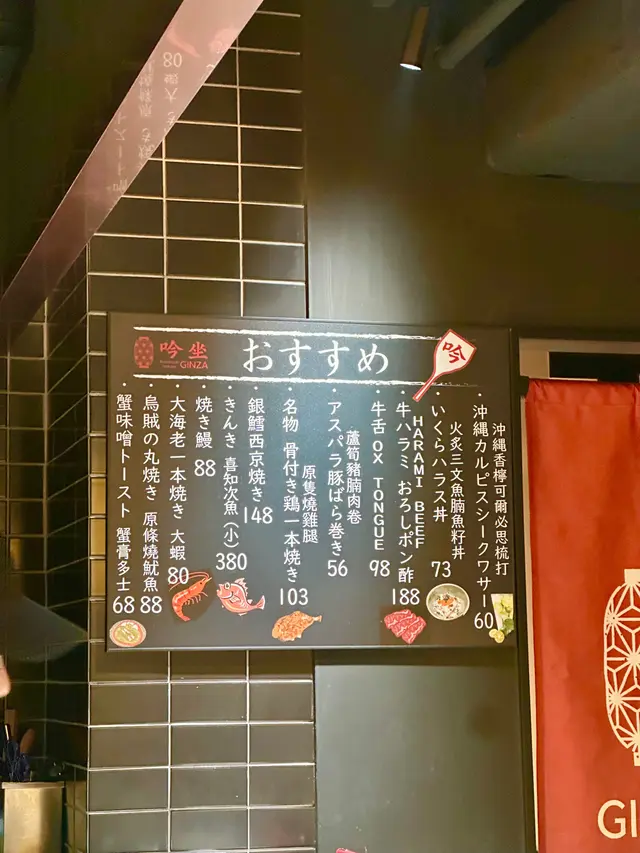 吟坐
GINZA
おすすめ
吟
沖縄香檸可爾必思梳打
・沖縄カルピスシークワサー 60
火炙三文魚腩魚籽丼
・いくらハラス丼 73
HARAMI BEEF
・牛ハラミ おろしポン酢 188
・牛舌 OX TONGUE 98
蘆筍豬腩肉卷
・アスパラ豚ばら巻き 56
原隻燒雞腿
・名物 骨付き鶏一本焼き 103
・銀鱈西京焼き 148
・きんき 喜知次魚(小) 380
・焼き鰻 88
・大海老一本焼き 大蝦 80
・烏賊の丸焼き 原條燒魷魚 88
・蟹味噌トースト 蟹膏多士 68
GI